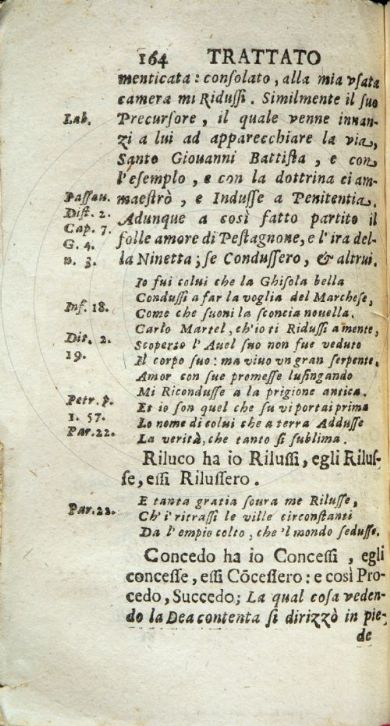 164 TRATTATO
menticata: consolato, alla mia vsata
camera mi Ridussi. Similmente il suo
Lab. Precursore, il quale venne innan-
zi a lui ad apparecchiare la via,
Santo Giouanni Battista, e con
l'esempio, e con la dottrina ci am-
Passau. maestrò, e Indusse a Penitentia.
Dist. 2. Adunque a così fatto partito il
Cap. 7.
G. 4. folle amore di Pestagnone, e l'ira del-
n. 3. la Ninetta; se Condussero, & altrui.
Io fui colui che la Ghisola bella
Inf. 18. Condussi a far la voglia del Marchese,
Come che suoni la sconcia nouella.
Dit. 2. Carlo Martel, ch'io ti Ridussi a mente,
19. Scoperto l'Auel suo non fue veduto
Il corpo suo: ma viuo vn gran serpente,
Amor con sue promesse lusingando
Petr. p. Mi Ricondusse a la prigione antica.
1. 57. Et io son quel che su vi portai prima
Par. 22. Lo nome di colui che a terra Addusse
La verità, che tanto si sublima.
Riluco ha io Rilussi, egli Rilus-
se, essi Rilussero.
Par. 22. E tanta gratia soura me Rilusse,
Ch'i' ritrassi le ville circonstanti
Da l'empio colto, che 'l mondo sedusse.
Concedo ha io Concessi, egli
concesse, essi Cōcessero: e così Pro-
cedo, Succedo; La qual cosa veden-
do la Dea contenta si dirizzò in pie-
de